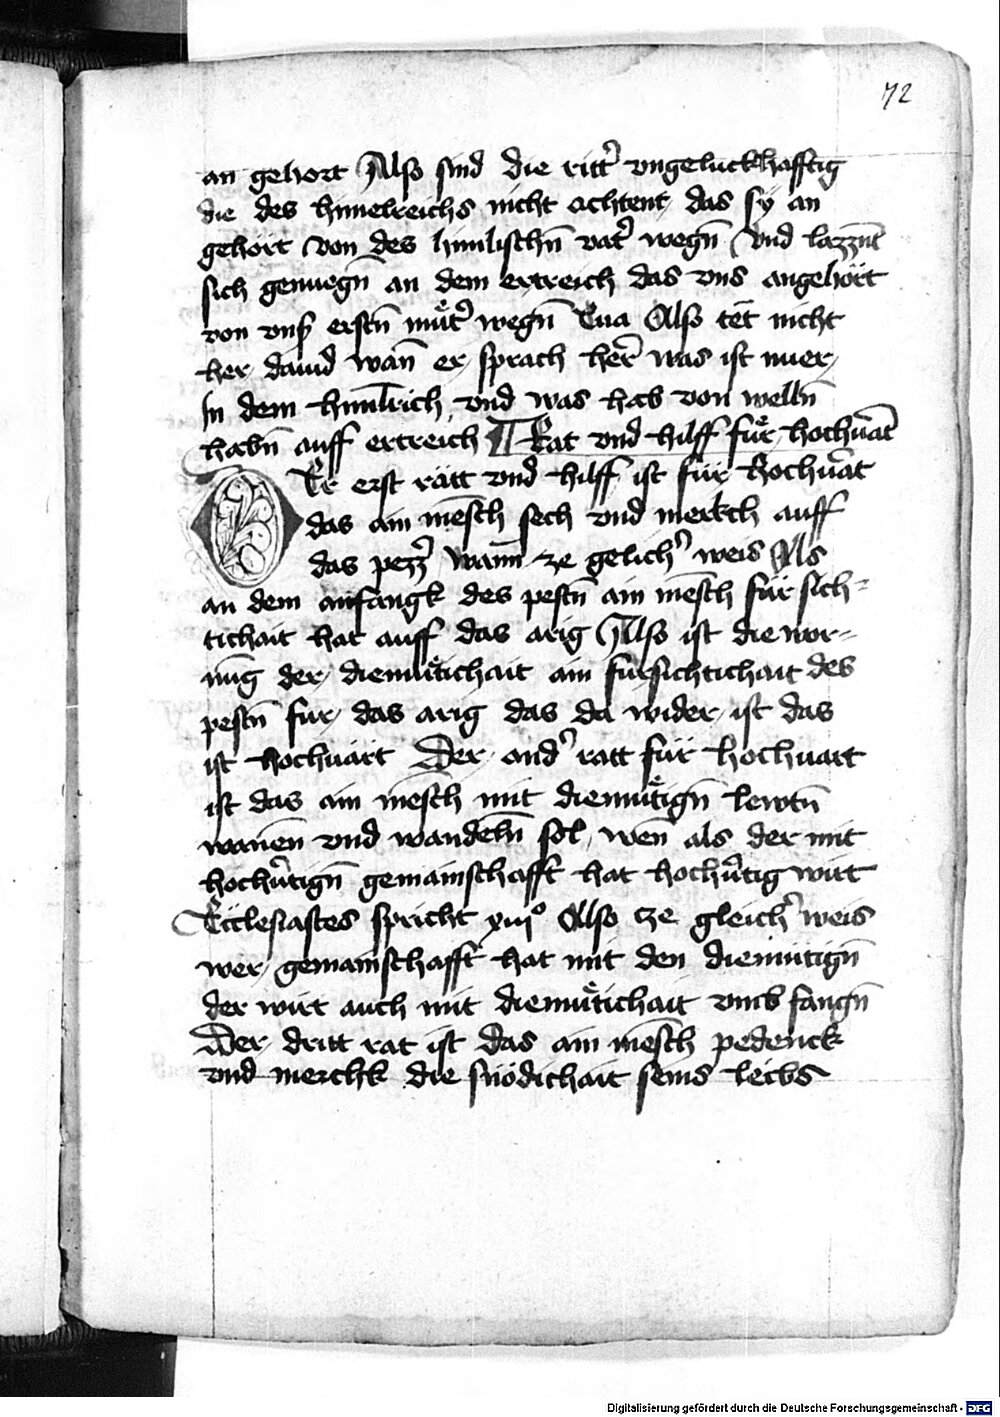 72
an gehort Also sind die ritt̾ vngeluckhafftig
die des himelreichs nicht achtent das sy an
gehört von des himlischn̄ vat̾ wegn̄ vnd lazznt
sich genuegn̄ an dem ertreich das vns angehört
von vns̾ erstn̄ můt̾ wegn̄ Eua Also tet nicht
her dauid wan̄ er sprach her̄ was ist mer
In dem himlrich vnd was hab von welln̄
habn̄ auff ertreich ¶ Rat vnd hilff für hochuart
Der erst rätt vnd hilff ist für hochuart
das ain mēsch sech vnd merkch auff
das pezz̾ wann ze gelich̾ weis Als
an dem anfangk des pestn̄ ain mēsch für sich-
tichait hat auff das arig Also ist die wor-
nūg der diemůtichait ain fürsichtichait des
pestn̄ fur das arig das da wider ist das
ist hochuart Der and̾ ratt für hochuart
ist das ain mēsch mit diemůtign̄ lewtn̄
wanen vnd wandeln̄ sol wen̄ als der mit
hochu̾tign̄ gemainschafft hat hochu̾tig wirt
Ecclesiastes spricht xiijº Also ze gleich̾ weis
wer gemainschafft hat mit den diemutign̄
der wirt auch mit diemůtichait vmb fangn̄
Der dritt rat ist das ain mēsch pedenck
vnd merchk die snödichait seins leibs
Digitalisierung gefördert durch die Deutsche Forschungsgemeinschaft - DFG